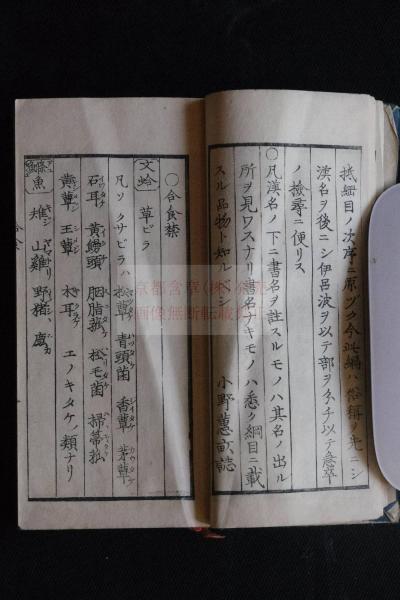 抵綱目ノ次序ニ原ヅク今此編ハ俗稱ヲ先ニシ
漢名ヲ後ニシ伊呂波ヲ以テ部ヲ分チ以テ急卒
ノ撿尋ニ便リス
〇凡漢名ノ下ニ書名ヲ註スルモノハ其名ノ出ル
所ヲ見ワスナリ書名ナキモノハ悉ク綱目ニ載
スル品物ト知ルベシ
小野蕙畝誌
〇合食禁
文蛤 草ビラ
凡ソクサビラハ松蕈 青頭菌 香蕈 茅蕈
石耳 黄鰝頭 胭脂菰 松毛菌 掃帚菰
黄蕈 玉蕈 木耳 エノキタケノ類ナリ
魚 雉 山雞 野猪 鹿